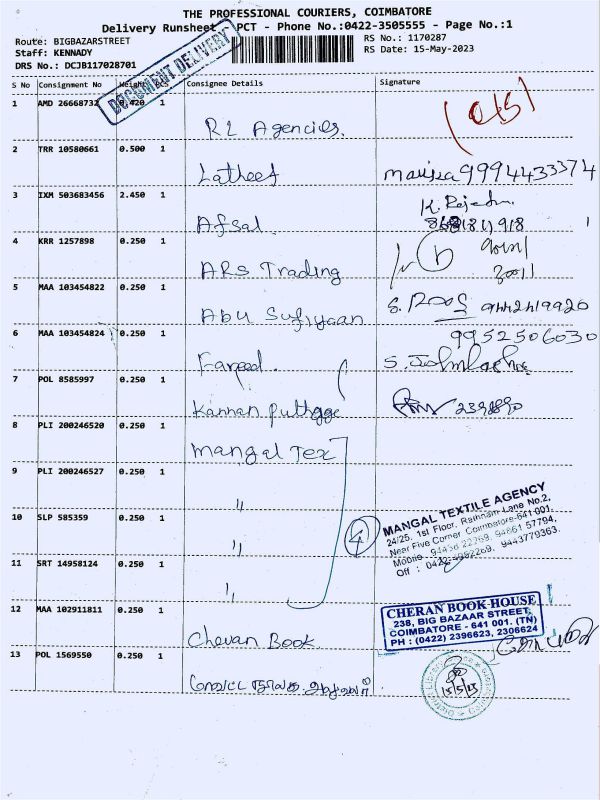 THE PROFESSIONAL COURIERS, COIMBATORE
Delivery Runsheet PCT - Phone No.:0422-3505555 - Page No.:1
Route: BIGBAZARSTREET
RS No.: 1170287
Staff: KENNADY
RS Date: 15-May-2023
DRS No.: DCJB117028701
DOCUMENT DELIVERY
S No Consignment No Weight Pcs Consignee Details Signature
1 AMD 26668732 0.420 1 RL Agencies.
2 TRR 10580661 0.500 1 Latheef 9994433374
3 IXM 503683456 2.450 1 Afsal.
4 KRR 1257898 0.250 1 ARS Trading
5 MAA 103454822 0.250 1 Abu Sufiyaan 9442419920
6 MAA 103454824 0.250 1 Fareed. 9952506030
7 POL 8585997 0.250 1 Kannan puthgge
8 PLI 200246520 0.250 1 Mangal Tex
9 PLI 200246527 0.250 1 "
10 SLP 585359 0.250 1 " 4
MANGAL TEXTILE AGENCY
24/25, 1st Floor, Rathnam Lane No.2,
Near Five Corner Coimbatore-641 001.
Mobile : 94438 22769, 94861 57794,
Off : 9443779363.
11 SRT 14958124 0.250 1 "
12 MAA 102911811 0.250 1 Cheran Book
CHERAN BOOK HOUSE
238, BIG BAZAAR STREET,
COIMBATORE - 641 001. (TN)
PH : (0422) 2396623, 2306624
13 POL 1569550 0.250 1
15/5/23